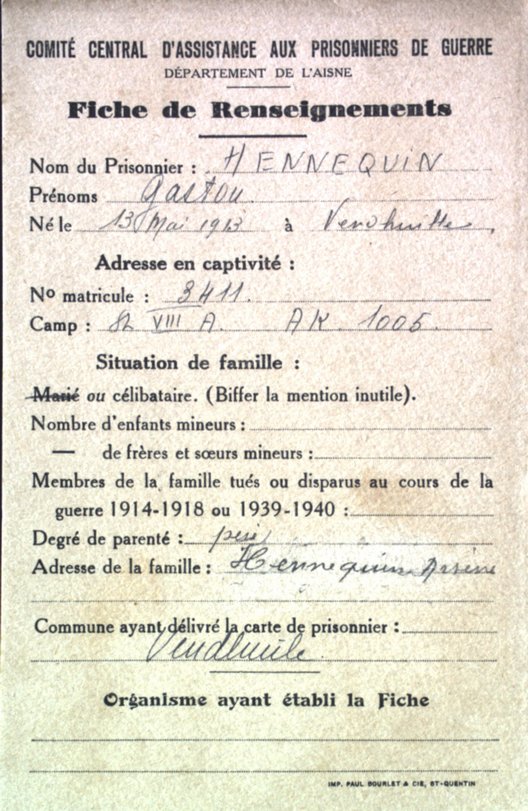 COMITÉ CENTRAL D'ASSISTANCE AUX PRISONNIERS DE GUERRE
DÉPARTEMENT DE L'AISNE
Fiche de Renseignements
Nom du Prisonnier : HENNEQUIN
Prénoms Gaston
Né le 13 Mai 1913 à
Adresse en captivité :
No matricule : 3411.
Camp : VIII A. AK. 1005.
Situation de famille :
Marié ou célibataire. (Biffer la mention inutile).
Nombre d'enfants mineurs :
— de frères et sœurs mineurs :
Membres de la famille tués ou disparus au cours de la
guerre 1914-1918 ou 1939-1940 :
Degré de parenté : père
Adresse de la famille : Hennequin Arsène
Commune ayant délivré la carte de prisonnier :
Vendhuile
Organisme ayant établi la Fiche
IMP. PAUL BOURLET & CIE, ST-QUENTIN